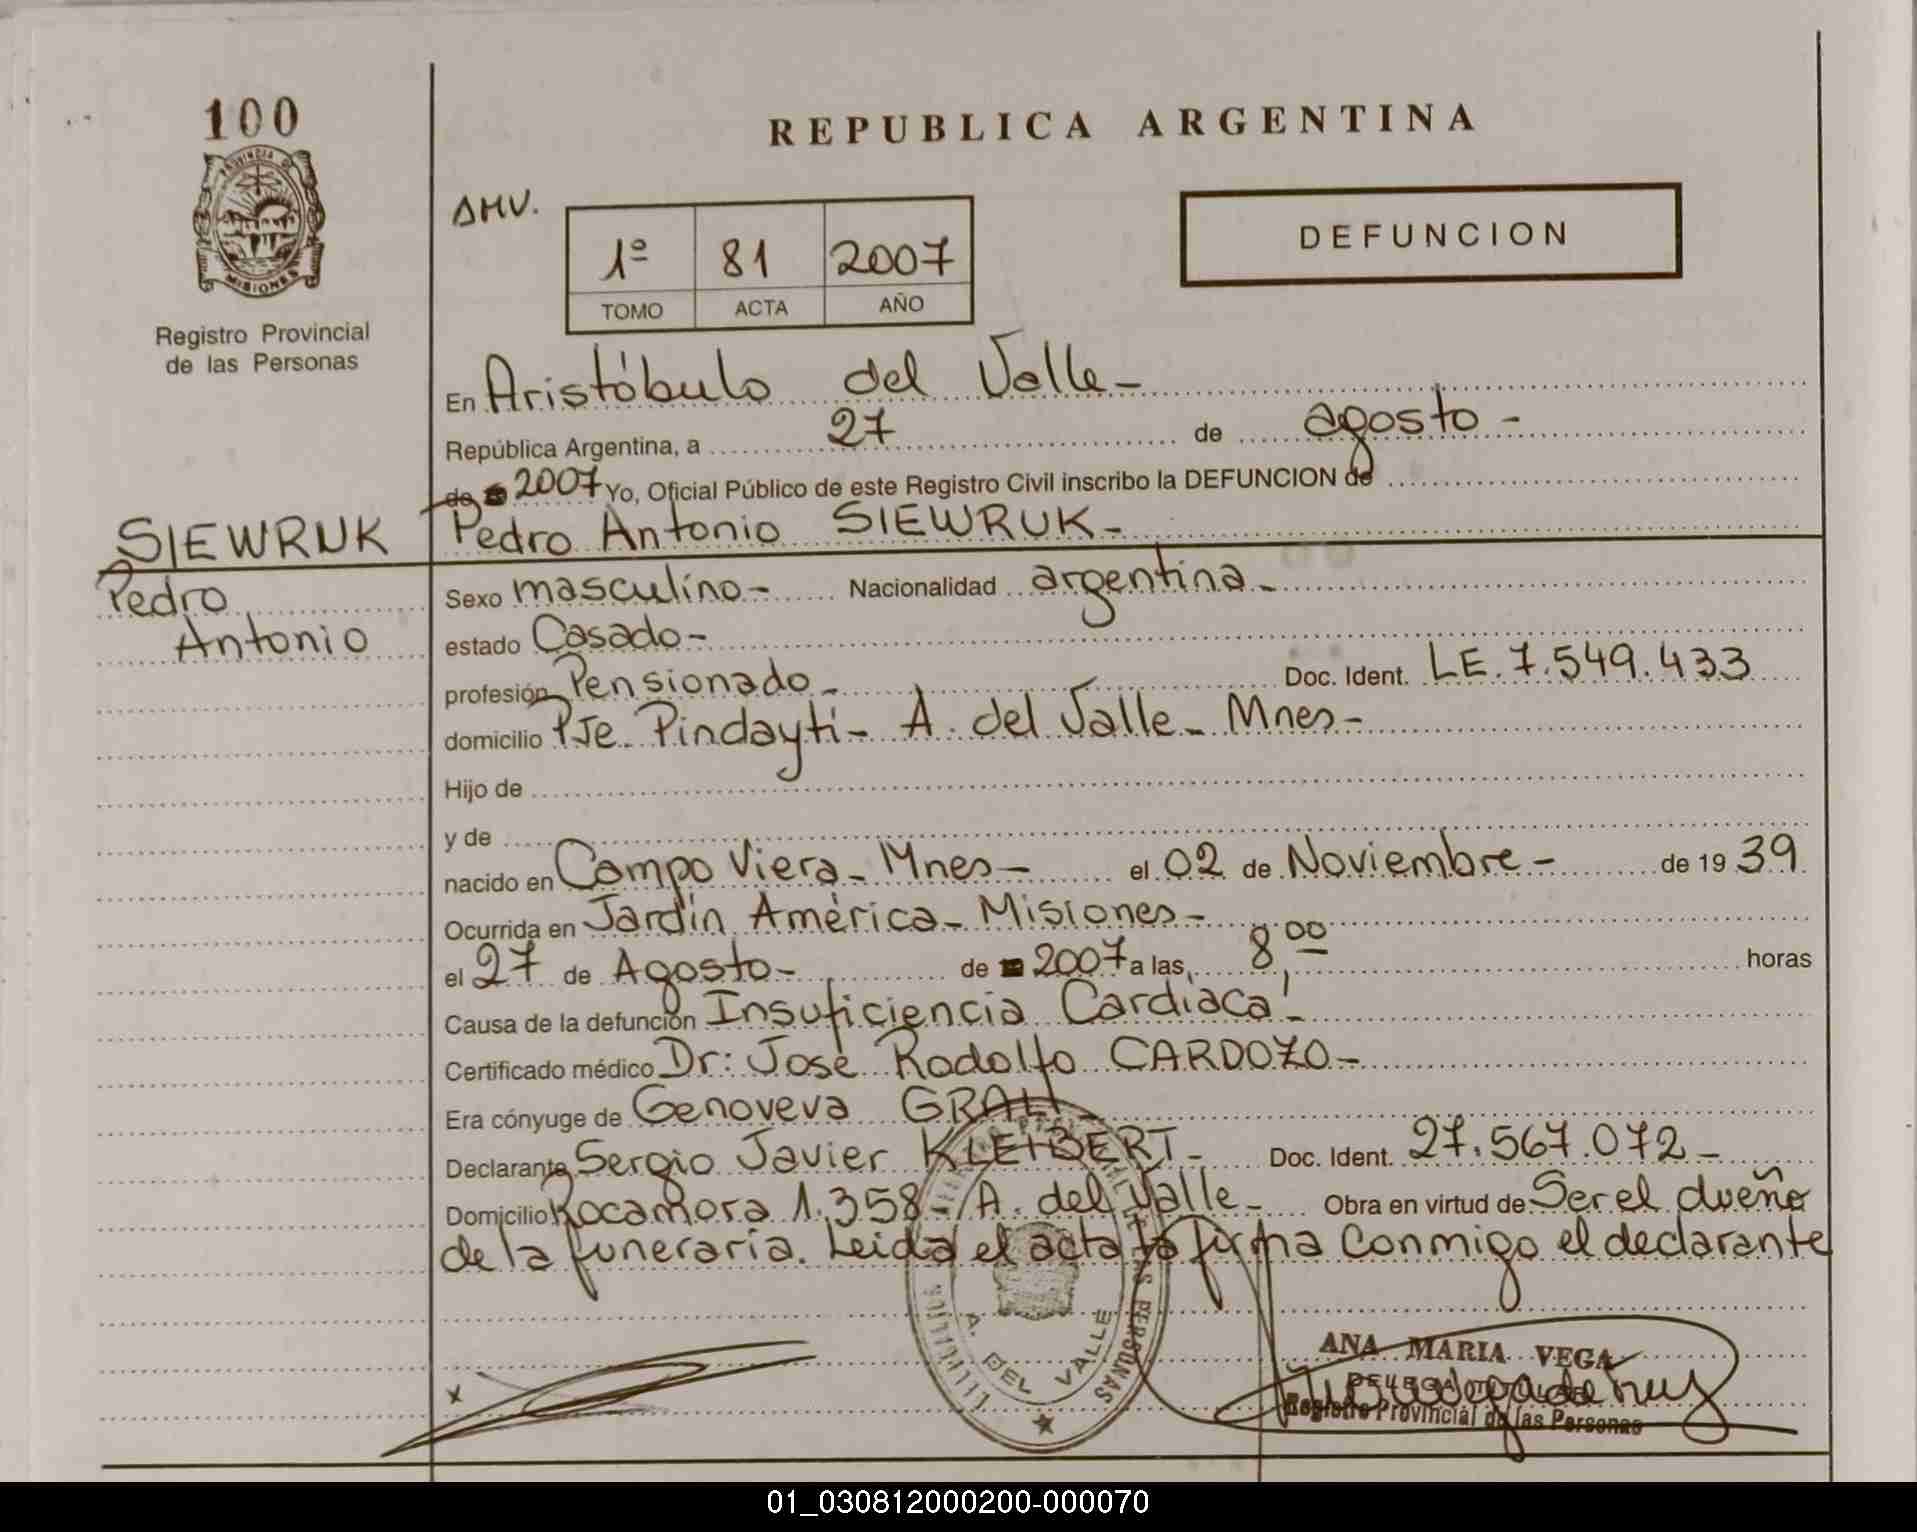 100
PROVINCIA D
MISIONES
Registro Provincial
de las Personas
REPUBLICA ARGENTINA
AMV.
1º 81 2007
TOMO ACTA AÑO
DEFUNCION
En Aristóbulo del Valle-
República Argentina, a 27 de agosto -
de 2007 Yo, Oficial Público de este Registro Civil inscribo la DEFUNCION de
SIEWRUK
Pedro Antonio SIEWRUK-
Pedro
Antonio
Sexo masculino- Nacionalidad argentina-
estado Casado-
profesión Pensionado- Doc. Ident. LE.7.549.433
domicilio PJe. Pindayti- A. del Valle- Mnes-
Hijo de
y de
nacido en Campo Viera- Mnes- el 02 de Noviembre- de 19 39
Ocurrida en Jardín América- Misiones-
el 27 de Agosto- de 2007 a las 8,00 horas
Causa de la defunción Insuficiencia Cardíaca-
Certificado médico Dr: José Rodolfo CARDOZO-
Era cónyuge de Genoveva
Declarante Sergio Javier KLEIBERT- Doc. Ident. 27.567.072-
Domicilio Rocamora 1.358- A. del Valle- Obra en virtud de Ser el dueño
de la funeraria. Leida el acta la firma conmigo el declarante
x
A. DEL VALLE
PERSONAS
ANA MARIA VEGA
Registro Provincial de las Personas
01_030812000200-000070